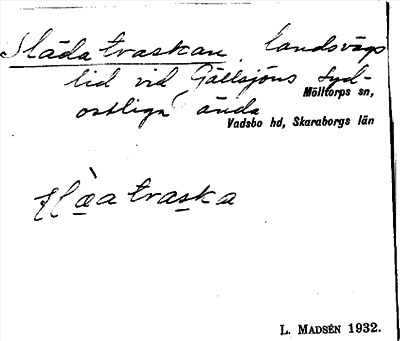 Slädatraskan, landsvägs
lid vid Gällsjöns syd-
ostliga ända
Mölltorps sn,
Vadsbo hd, Skaraborgs län
L. MADSÉN 1932.